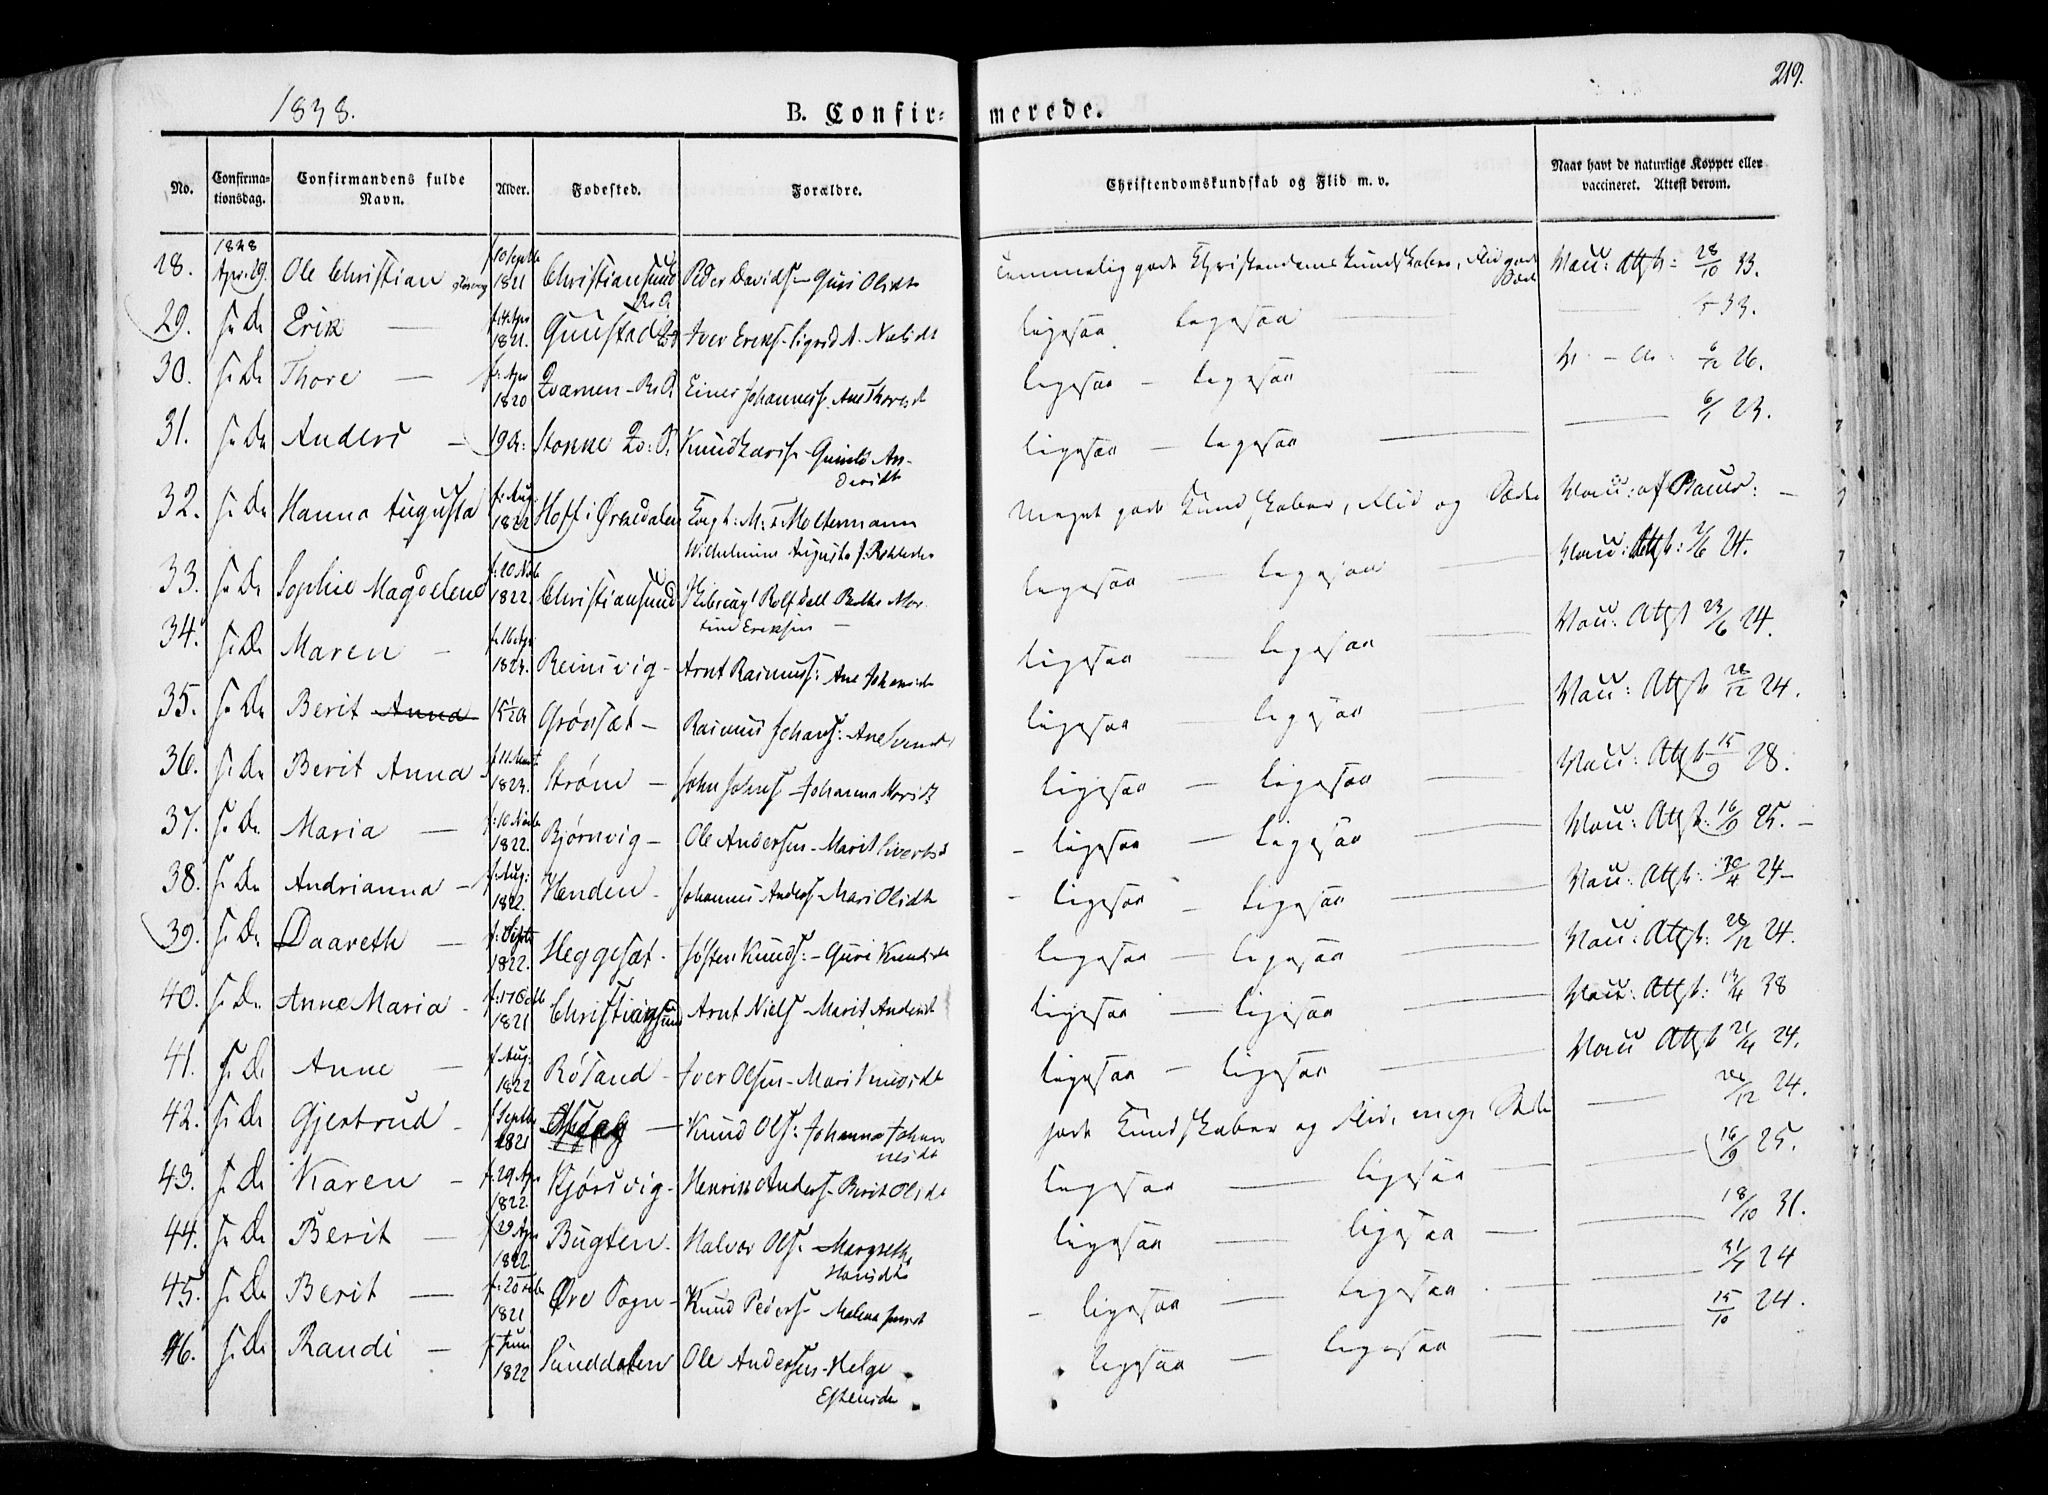 219.
1838. B. Confir= merede.
No. Confirma-tionsdag. Confirmandens fulde Navn. Alder. Fødested. Forældre. Christendomskundskab og Flid m. v. Naar havt de naturlige Kopper eller vaccineret. Attest derom.
28. 1838 Apr. 29. Ole Christian f 10 Septbr 1821 Christiansund Peder Davids - Guri Olsdt Temmelig gode Christendomskundskaber, Flid god Vacc: Attst: 28/10 33.
29. s. D. Erik — f. 14. Apr 1821. Iver Eriks. Sigrid A. Nilsdt ligesaa ligesaa — 33.
30. s. D. Thore — f. Apr 1820 Qvarnen - Einer Johannes. Ane Thoresdt ligesaa — ligesaa — 6/12 26.
31. s. D. Anders — 19 Stokke Qv: S. Knud Lars. Gunild Andersdt ligesaa — ligesaa — 6/1 23.
32. s. D. Hanna Augusta f. Aug. 1822 Hoff i Ørkedalen M. Moltermann Wilhelmine Augusta Meget gode Kundskaber, Flid og Sæder Vacc: af —
33. s. D. Sophie Magdelene f. 10 Novbr 1822. Christiansund Rolfsdell Berthe Martine Eriksen — ligesaa — ligesaa — Vacc: Attst: 24.
34. s. D. Maren — f. 16 Apr. 1823. Reinsvig - Arnt Rasmuss: Ane Johansdt ligesaa — ligesaa — Vacc: Attst 23/6 24.
35. s. D. Berit Anna 15 1/2 Grønsæt — Rasmus Johans: Ane ligesaa — ligesaa — Vacc: Attst 28/12 24.
36. s. D. Berit Anna f. 11. Mart. 1823. Strøm — John Johns. Johanna ligesaa — ligesaa — Vacc: Attst 15/9 28.
37. s. D. Maria — f. 10 Novbr 1822. Bjørnvig — Ole Andersen - Marit Sivertsd - ligesaa — ligesaa — Vacc: Attst: 16/9 25. —
38. s. D. Andrianna — f. Aug: 1822. Henden - Johannes Anders - Mari Olsdt - ligesaa — ligesaa — Vacc: Attst: 30/4 24 —
39. s. D. Daareth — f. Septr 1822. Heggesæt - Josten Knuds: - Guri Knudsdt ligesaa — ligesaa — Vacc: Attst: 28/12 24.
40. s. D. Anne Maria - f. 17 Octb 1821 Christiansund Arnt Niels - Marit Andersdt ligesaa — ligesaa — Vacc: Attst: 13/4 38
41. s. D. Anne — f. Aug. 1822 Røsand - Iver Olsen - Marit ligesaa — ligesaa — Vacc Attst 21/4 24.
42. s. D. Gjertrud - f. Septbr 1821 — Knud Ols: Johanna Johannesdt gode Kundskaber og Flid, meget Sæder — 28/12 24.
43. s. D. Karen — f. 29. Apr 1822. Kjørsvig - Henrik Anders - Berit Olsdt ligesaa — ligesaa — 16/9 25.
44. s. D. Berit — f. 29 Apr 1822 Bugten - Halvor Ols. Margreth Hansdt ligesaa — ligesaa — 18/10 31.
45. s. D. Berit — f. 20 1821 Øre Sogn - Knud Peders - Malena - ligesaa — ligesaa — 24
46. s. D. Randi — f. Juni 1822 Sunddalen Ole Andersen - Helge Estensdt ligesaa — ligesaa — 15/10 24.